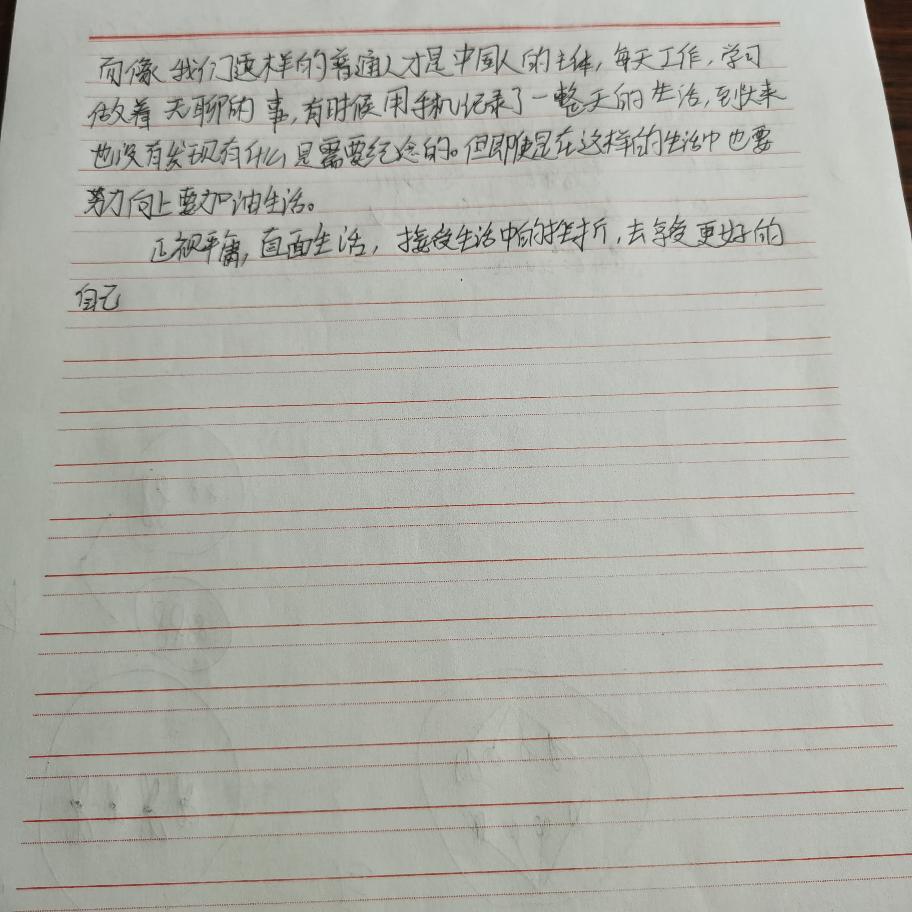 而像我们这样的普通人才是中国人的主体，每天工作，学习
做着无聊的事，有时候用手机记录了一整天的生活，到头来
也没有发现有什么是需要纪念的。但即便是在这样的生活中也要
努力向上要加油生活。
正视平庸，直面生活，接受生活中的挫折，去享受更好的
自己